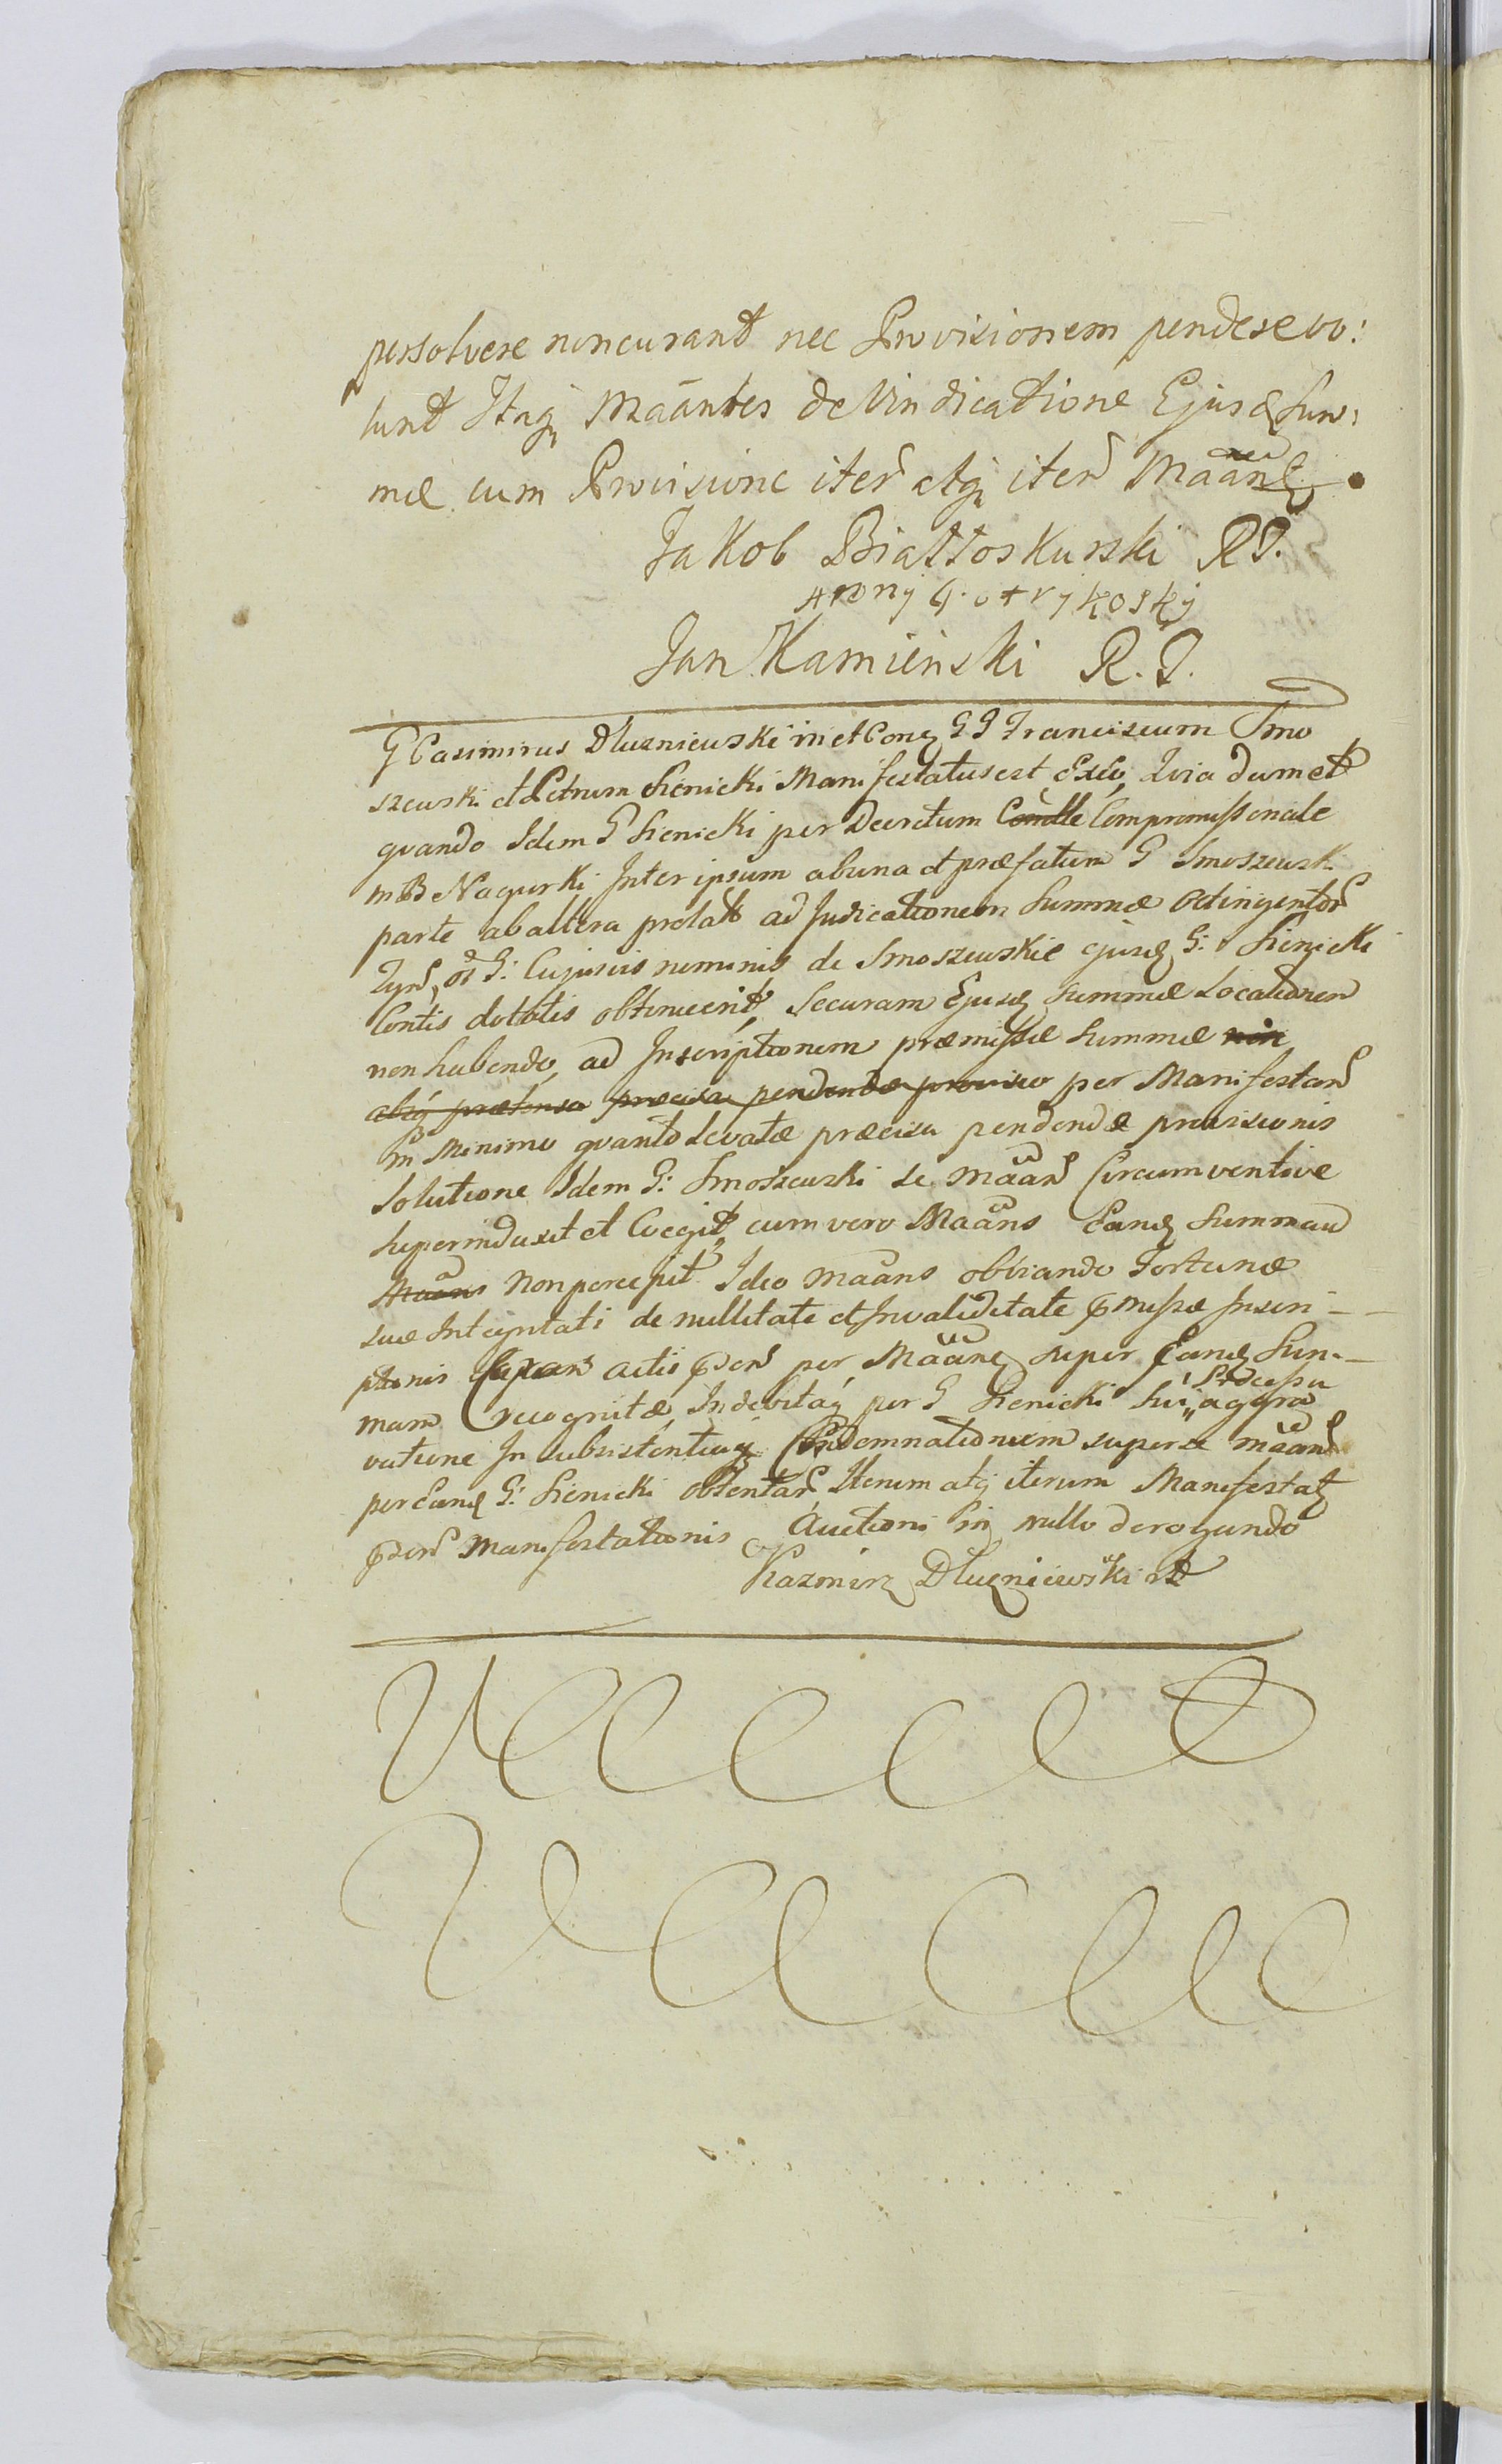 persolvere noncurant nec Provisionem pendere vo:
lunt Itaq Maantes de Vindicatione Ejusd Sum:
mæ cum Provisione iter atq iter Maane
Jakob Białłoskurski RP.
Jan Kamienski R.P.
G Casimirus Dluzniewski in et Conq GG Franciscum Smo
szewski et Petrum Sienicki Manifestatus est Exeo, Quia dum et
quando Idem G Sienicki per Decretum Condle Compromissionale
m B Nagurki Inter ipsum ab una et præfatum G Smoszewsk
parte ab altera prolat adjudicationem Summæ Octingentor
Tynf, or G: Cujusvis neminis de Smoszewskie ejusd G: Sienicki
Contis dotalis obtinuerit, Securam Ejusd Summæ Locationem
non habendo, ad Inscriptionem præmissæ Summæ non
absq prætensa præcisa pendendæ proviseo per Manifestan
in Minimo quanto Levatæ præcisa pendendæ provisionis
Solutione Idem G: Smoszewski se Maan Circumventive
Superinduxit et Coegit, cum vero Maans Eand Summam
Maans Non percepit Ideo Maans obviando Fortunæ
suæ Integritati de nullitate et Invaliditate pmissæ Inscri-
ptionis actis pden per Maane super Eand Sum-
mam recognitæ, Indebitaq per G Sienicki Sui Processu aggra
vatione In subsistentiaq Condemnationum super se Maan
per Eund G: Sienicki obtentar Iterum atq iterum Manifestat
pden Manifestationis Auctioni in nullo derogando
Kazmirz Dluzniewski